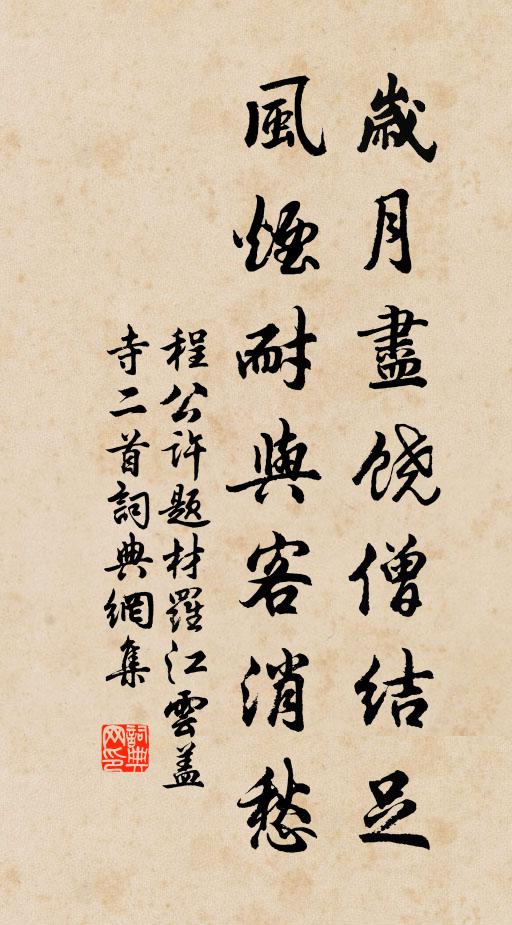 歲月盡饒僧結足
風煙耐與客消愁
程公許題材羅江雲蓋
寺二首詞典網集
詞典
网印